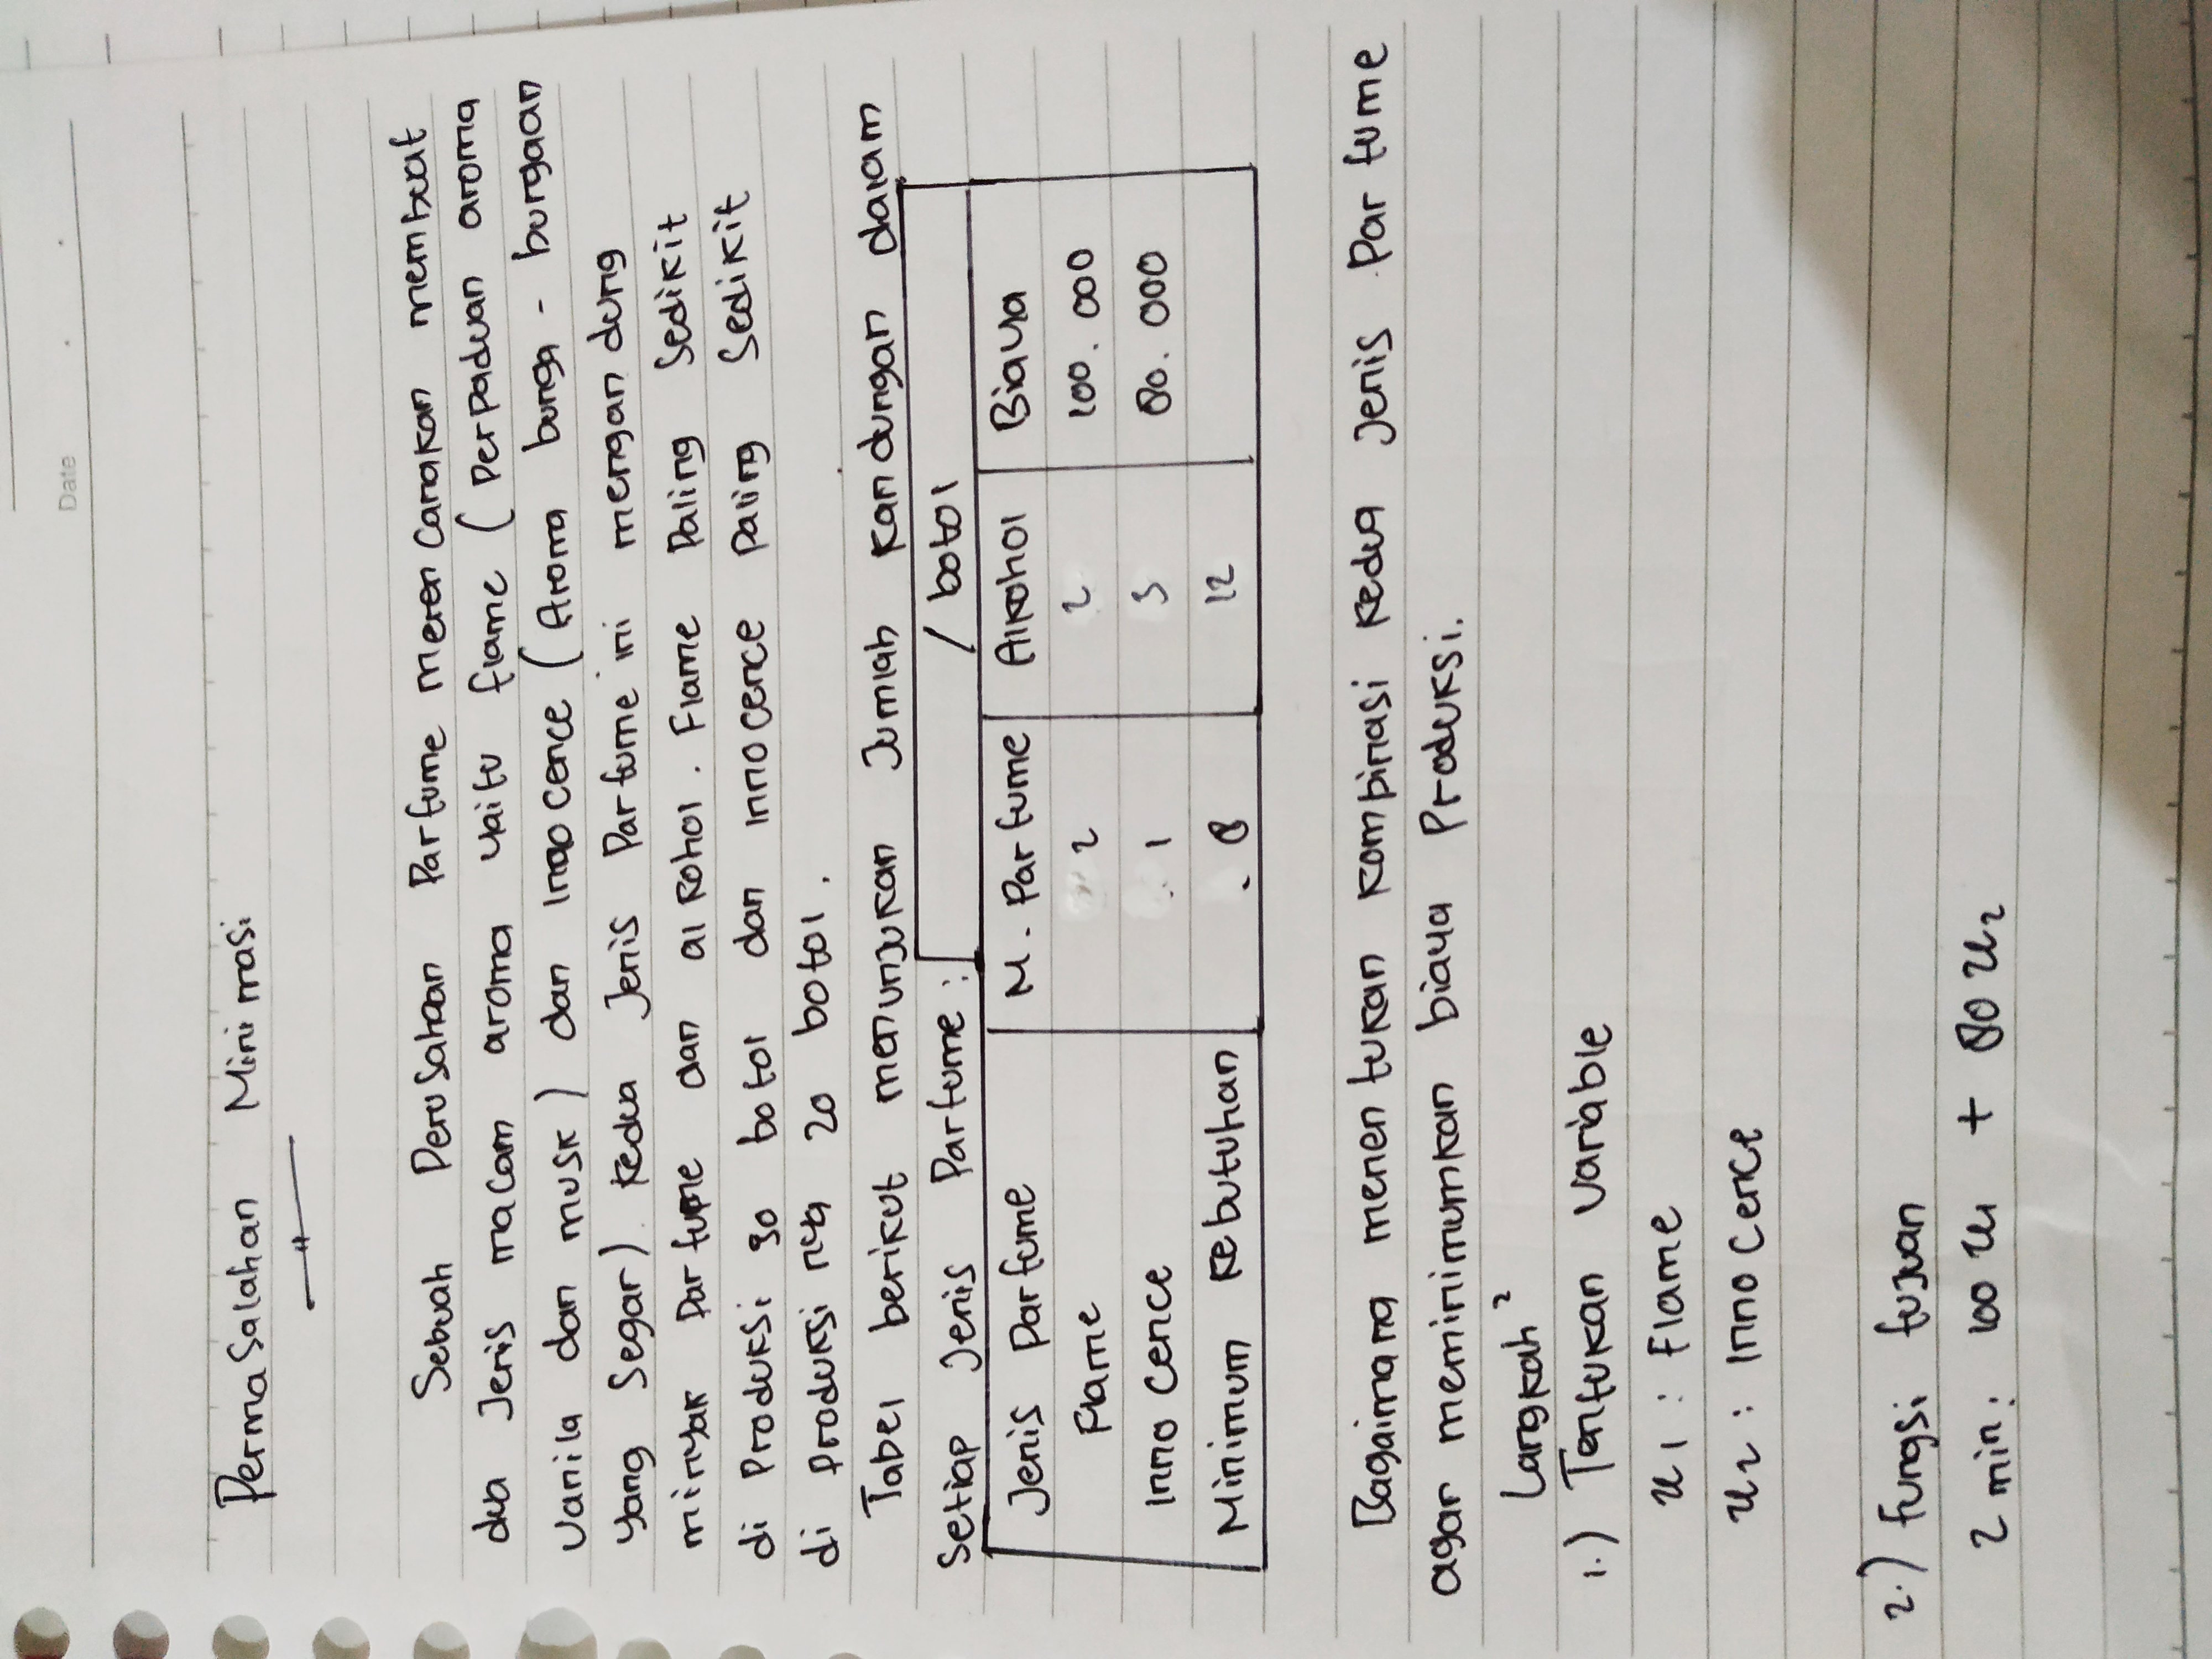 Date
Permasalahan Minimasi
Sebuah Perusahaan Parfume merencanakan membuat
dua Jenis macam aroma yaitu flame (Perpaduan aroma
vanila dan musk) dan Innocence (Aroma bunga - bungaan
yang segar). Kedua Jenis Parfume ini mengandung
minyak Parfume dan alkohol. Flame Paling sedikit
di Produksi 30 botol dan innocence Paling sedikit
di Produksi nya 20 botol.
Tabel berikut menunjukan Jumlah Kandungan dalam
setiap Jenis Parfume : / botol
Jenis Parfume M. Parfume Alkohol Biaya
Flame 2 2 100.000
Inno Cence 1 3 80.000
Minimum Kebutuhan 8 12
Bagaimana menentukan kombinasi kedua Jenis Parfume
agar meminimumkan biaya Produksi.
Langkah²
1.) Tentukan Variable
x1 : Flame
x2 : Inno Cence
2.) Fungsi tujuan
Z min : 100 x1 + 80 x2